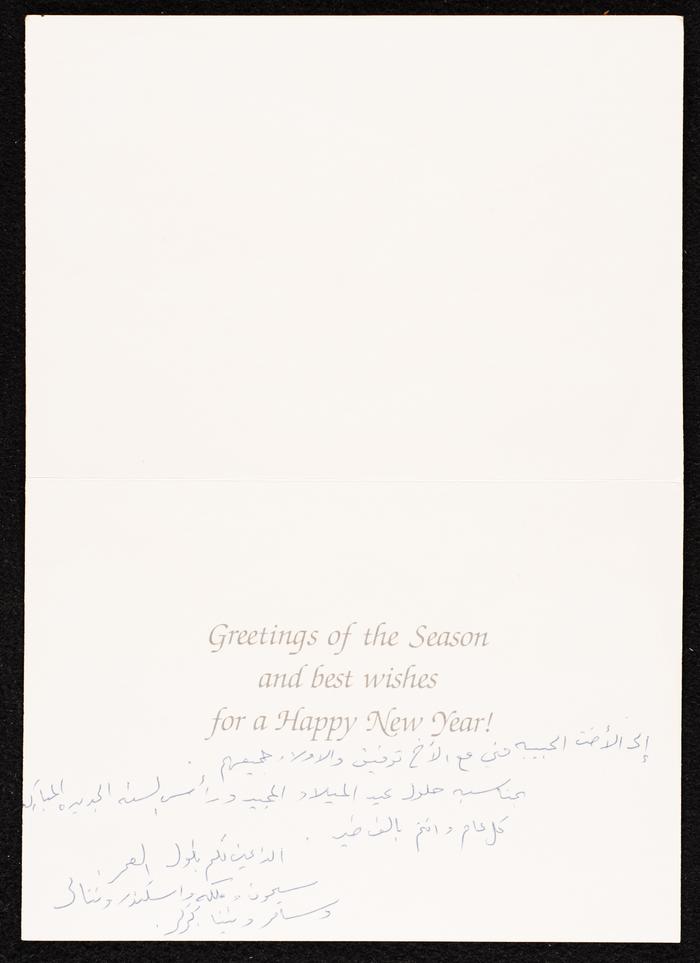 Greetings of the Season
and best wishes
for a Happy New Year!
إلى الأخت الحبيبه مع الأخ توفيق والاولاد جميعهم
بمناسبه حلول عيد الميلاد المجيد ورأس السنه الجديده المباركه
كل عام وانتم بالف خير
الداعين لكم بطول العمر
سيمون و ملكه واسكندر
و